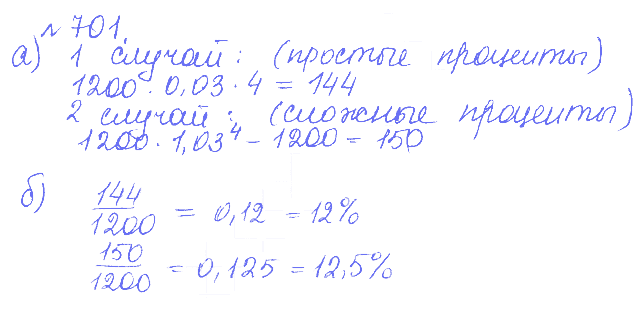 № 701.
а) 1 случай: (простые проценты)
1200 · 0,03 · 4 = 144
2 случай: (сложные проценты)
1200 · 1,03⁴ – 1200 = 150
б) 144/1200 = 0,12 = 12%
150/1200 = 0,125 = 12,5%